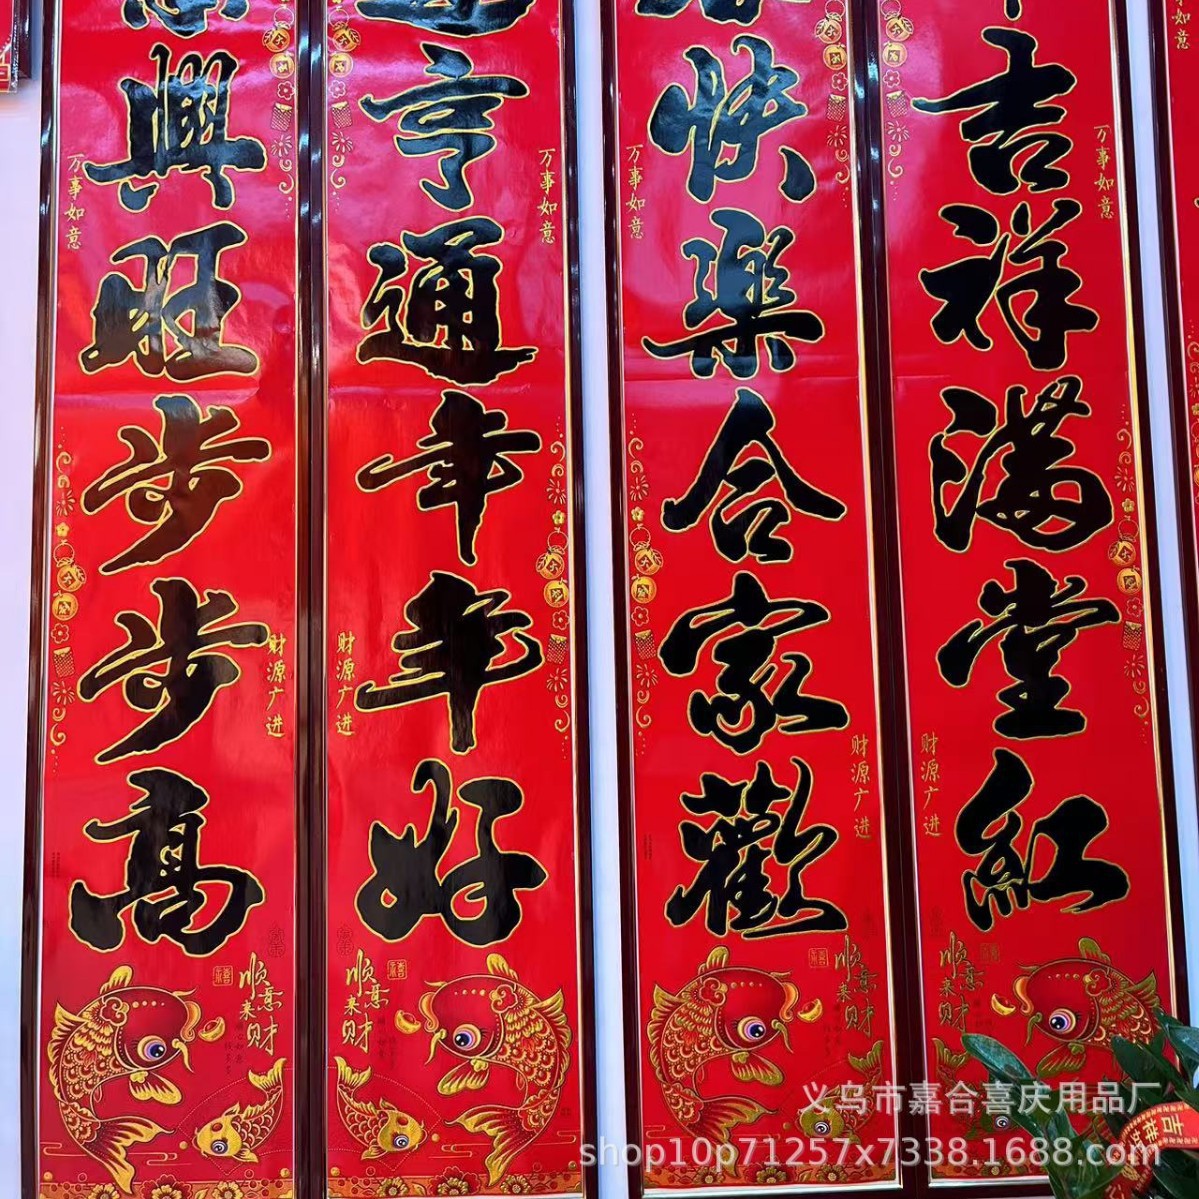 興旺步步高
亨通年年好
快樂合家歡
吉祥满堂红
万事如意
万事如意
万事如意
万事如意
财源广进
财源广进
财源广进
财源广进
顺意来财
顺意来财
顺意来财
顺意来财
义乌市嘉合喜庆用品厂
shop10p71257x7338.1688.com